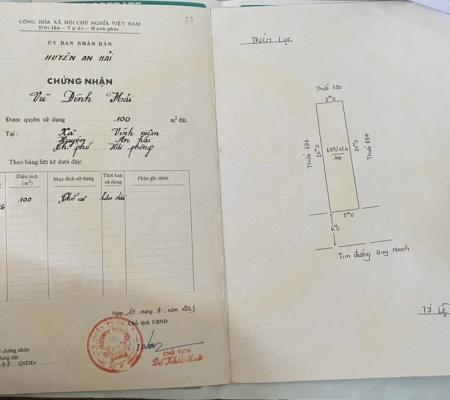 CỘNG HÒA XÃ HỘI CHỦ NGHĨA VIỆT NAM
Độc lập - Tự do - Hạnh phúc
ỦY BAN NHÂN DÂN
HUYỆN AN HẢI
CHỨNG NHẬN
Vũ Đình Hải
Được quyền sử dụng 100 m² đất
Tại : Xã Vĩnh niệm
Huyện An hải
Thành phố Hải phòng
Theo bảng liệt kê dưới đây:
Diện tích (m²) Mục đích sử dụng Thời hạn sử dụng Phần ghi thêm
100 Thổ cư Lâu dài
Ngày 10 tháng 4 năm
Chủ tịch UBND
CHỦ TỊCH
chứng nhận
dụng đất
QSDĐ/
TRÍCH LỤC
Thuở 690
5m0
Thuở 696
20m0
100
20m0
Thuở 694
5m0
Tim đường Quy Hoạch
TỶ LỆ